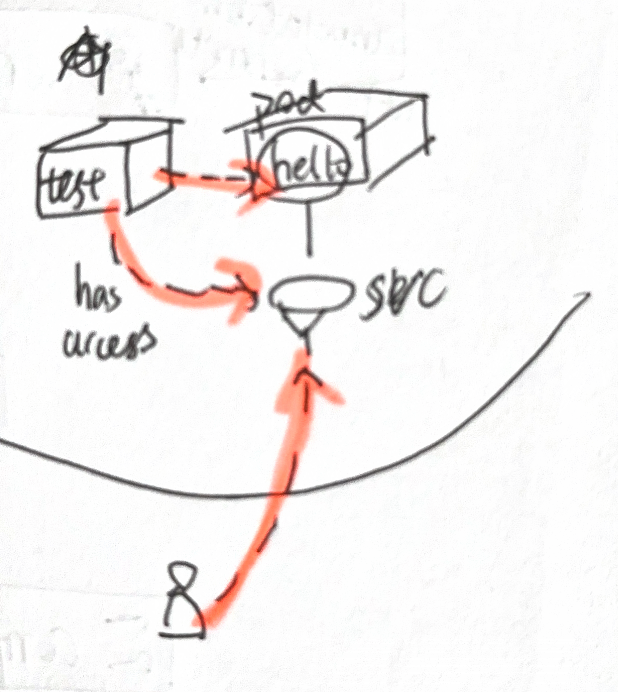 pod
test
hello
has
access
svc